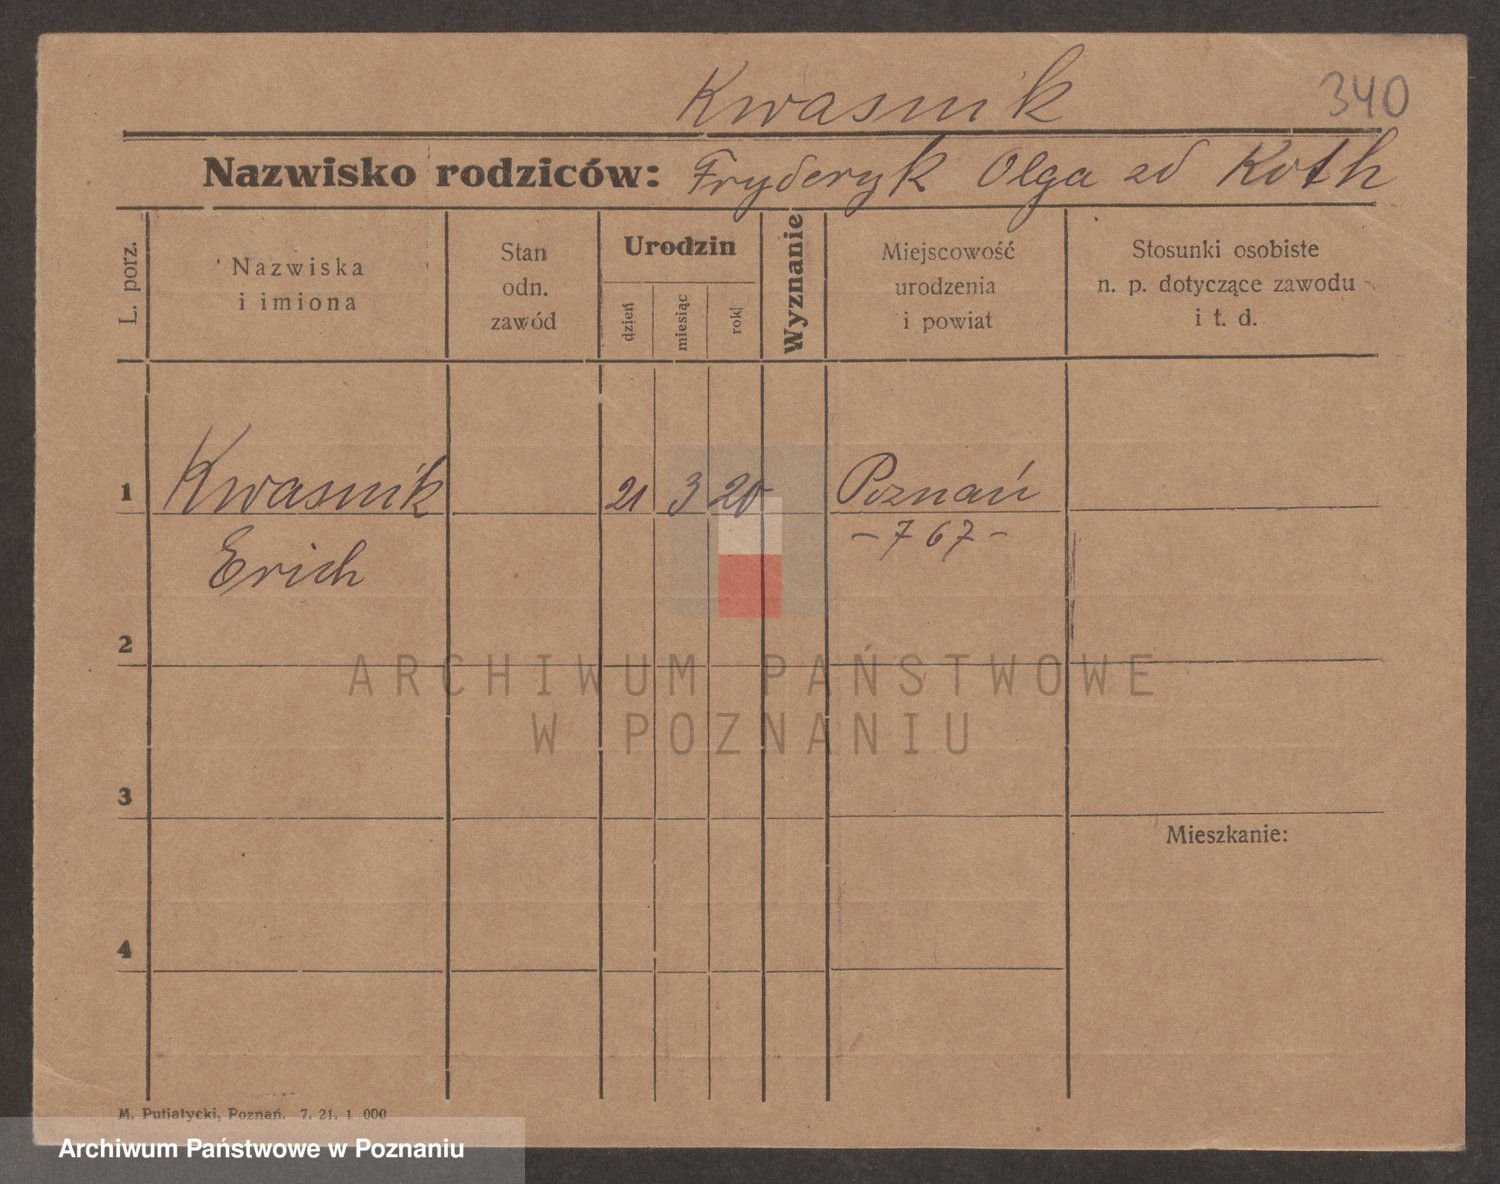 Kwasnik
340
Nazwisko rodziców: Fryderyk Olga zd Koth
L. porz.
Nazwiska
i imiona
Stan
odn.
zawód
Urodzin
dzień
miesiąc
rok
Wyznanie
Miejscowość
urodzenia
i powiat
Stosunki osobiste
n. p. dotyczące zawodu
i t. d.
1 Kwasnik 21 3 20 Poznań
Erich - 767 -
2
ARCHIWUM PAŃSTWOWE
W POZNANIU
3
Mieszkanie:
4
M. Putiatycki, Poznań. 7. 21. 1 000
Archiwum Państwowe w Poznaniu